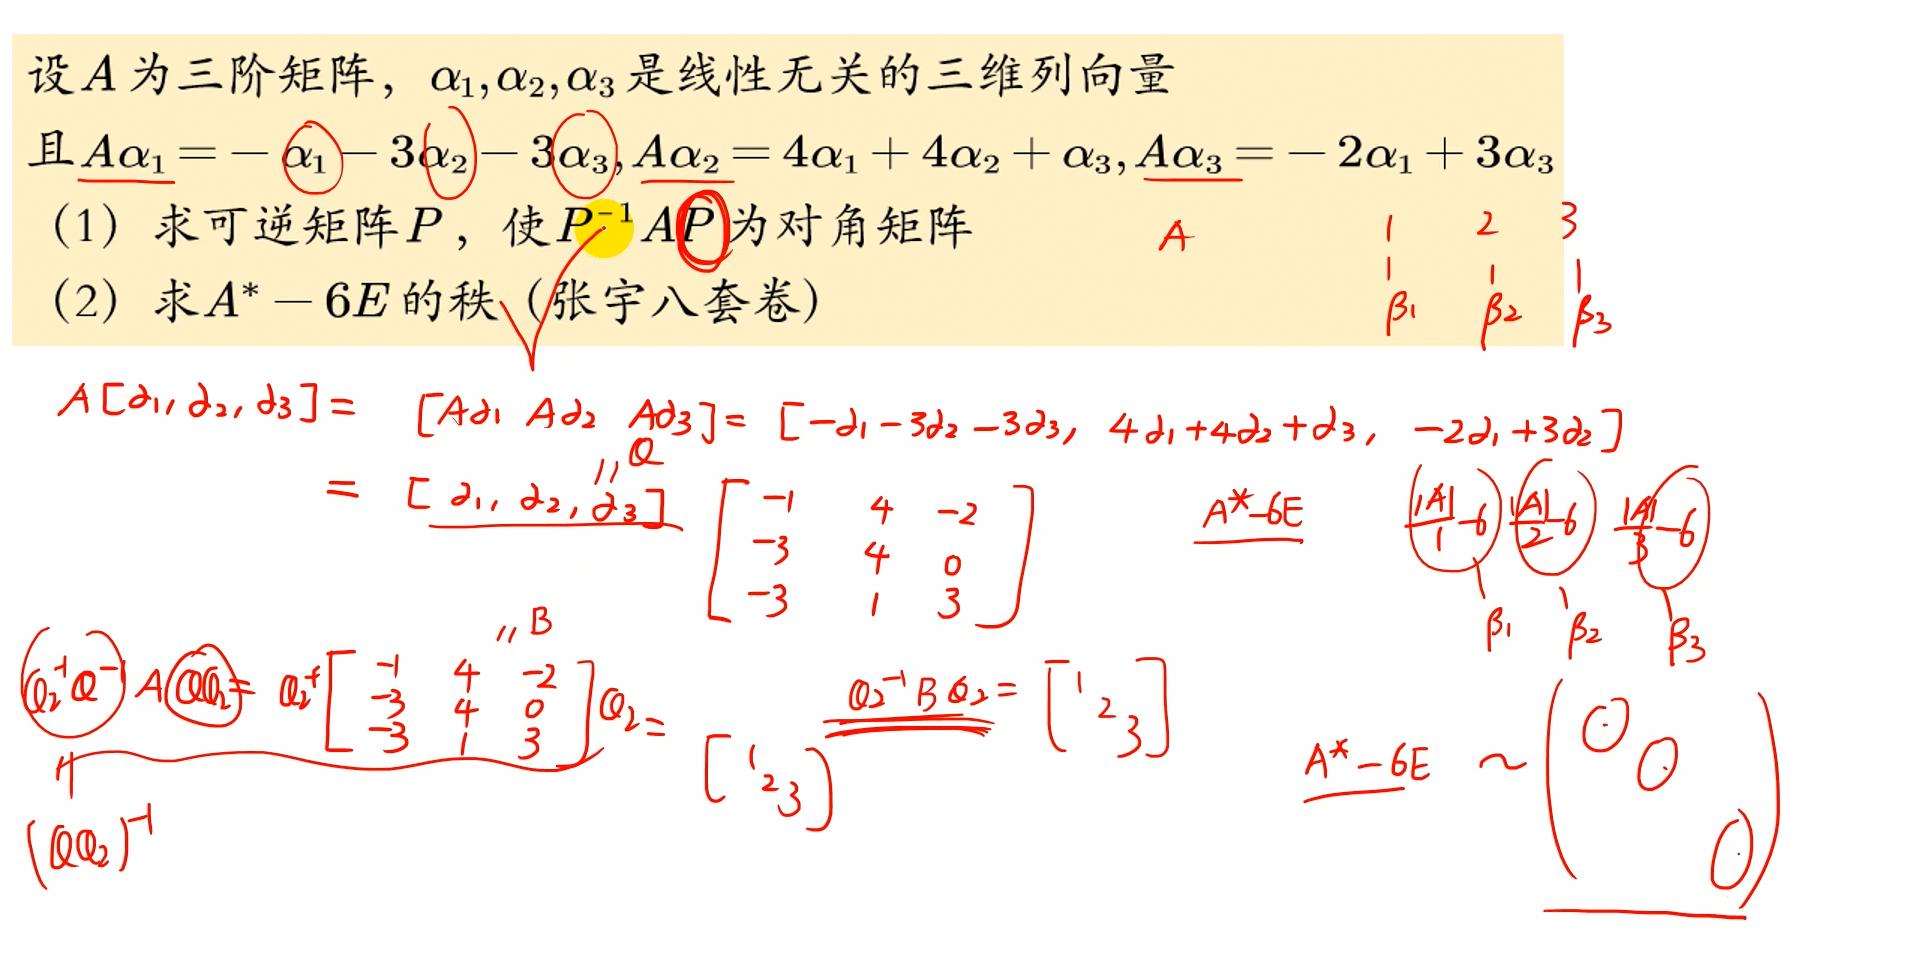 设A为三阶矩阵，α₁,α₂,α₃是线性无关的三维列向量
且Aα₁=-α₁-3α₂-3α₃,Aα₂=4α₁+4α₂+α₃,Aα₃=-2α₁+3α₃
（1）求可逆矩阵P，使P⁻¹AP为对角矩阵
（2）求A*-6E的秩（张宇八套卷）
A 1 2 3
β₁ β₂ β₃
A[α₁, α₂, α₃] = [Aα₁ Aα₂ Aα₃] = [-α₁-3α₂-3α₃, 4α₁+4α₂+α₃, -2α₁+3α₂]
Q
= [α₁, α₂, α₃] [-1 4 -2
-3 4 0
-3 1 3]
A*-6E |A|/1-6 |A|/2-6 |A|/3-6
β₁ β₂ β₃
B
Q₂⁻¹Q⁻¹AQQ₂ = Q₂⁻¹[-1 4 -2
-3 4 0
-3 1 3]Q₂ = [1 2 3]
(QQ₂)⁻¹
Q₂⁻¹BQ₂ = [1 2 3]
A*-6E ~ (0 0 0)